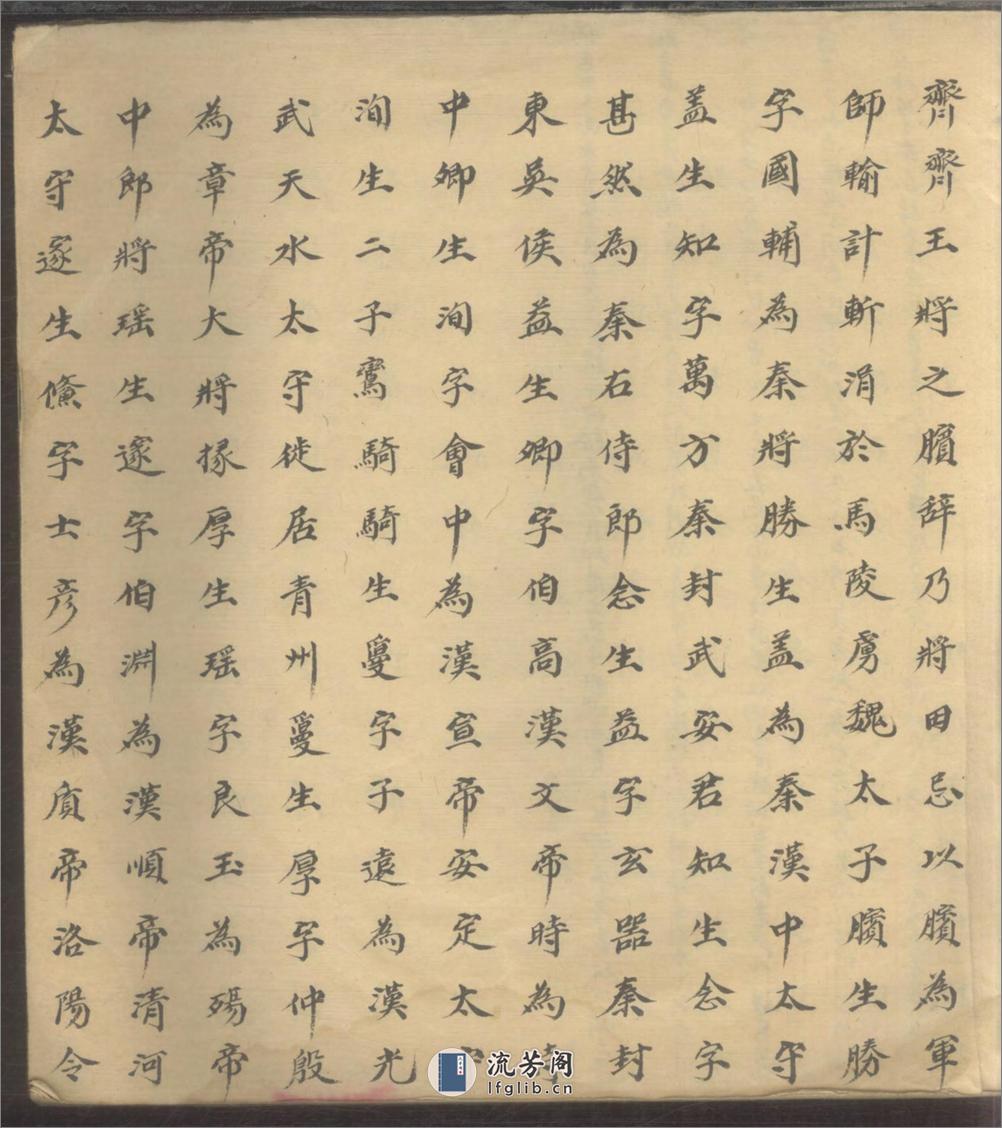 齊齊王將之臏辞乃將田忌以臏為軍
師輸計斬涓於馬陵虜魏太子臏生勝
字國輔為秦將勝生盖為秦漢中太守
盖生知字萬方秦封武安君知生念字
甚然為秦右侍郎念生益字玄器秦封
東吳侯益生卿字伯高漢文帝時為
中卿生洵字會中為漢宣帝安定太
洵生二子鸞騎騎生㬅字子遠為漢光
武天水太守徙居青州㬅生厚字仲殷
為章帝大將掾厚生瑶字良玉為殤帝
中郎將瑶生邃字伯淵為漢順帝清河
太守邃生儵字士彦為漢質帝洛陽令
流芳阁
lfglib.cn